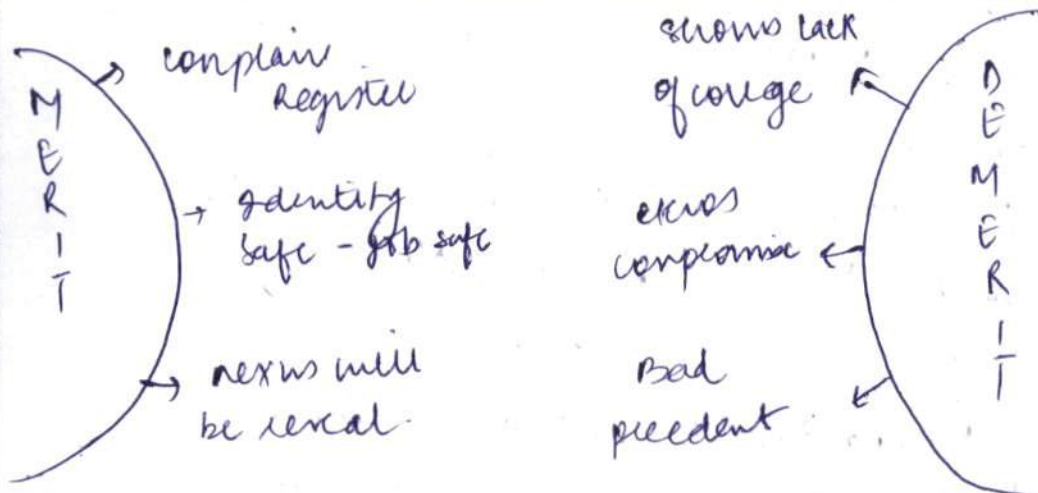 MERIT
complain
Register
Identity
safe - job safe
nexus will
be reveal.
shows lack
of courage
ethos
compromise
Bad
precedent
DEMERIT